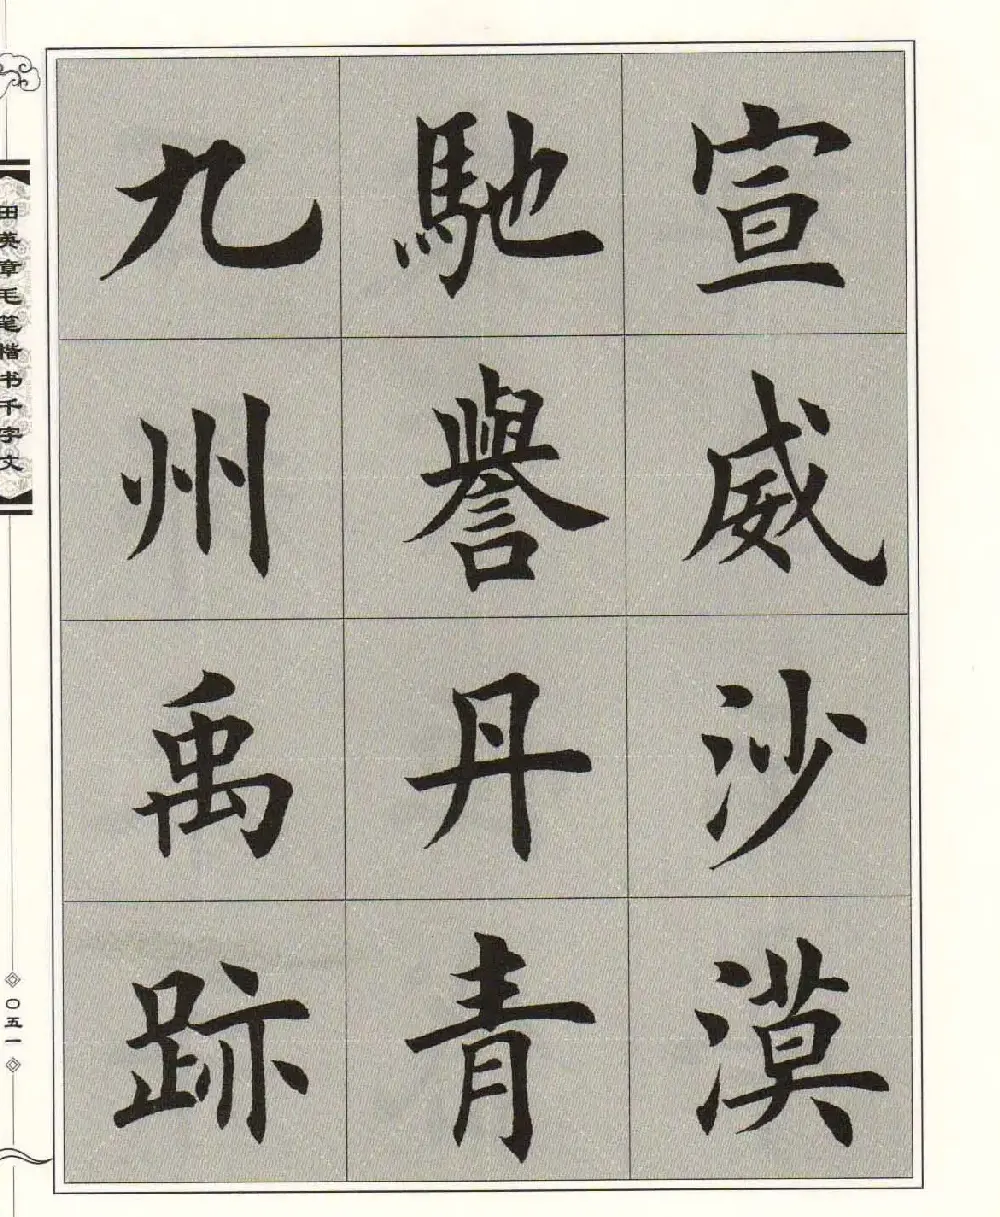 宣威沙漠
馳譽丹青
九州禹跡
田英章毛笔楷书千字文
〇五一